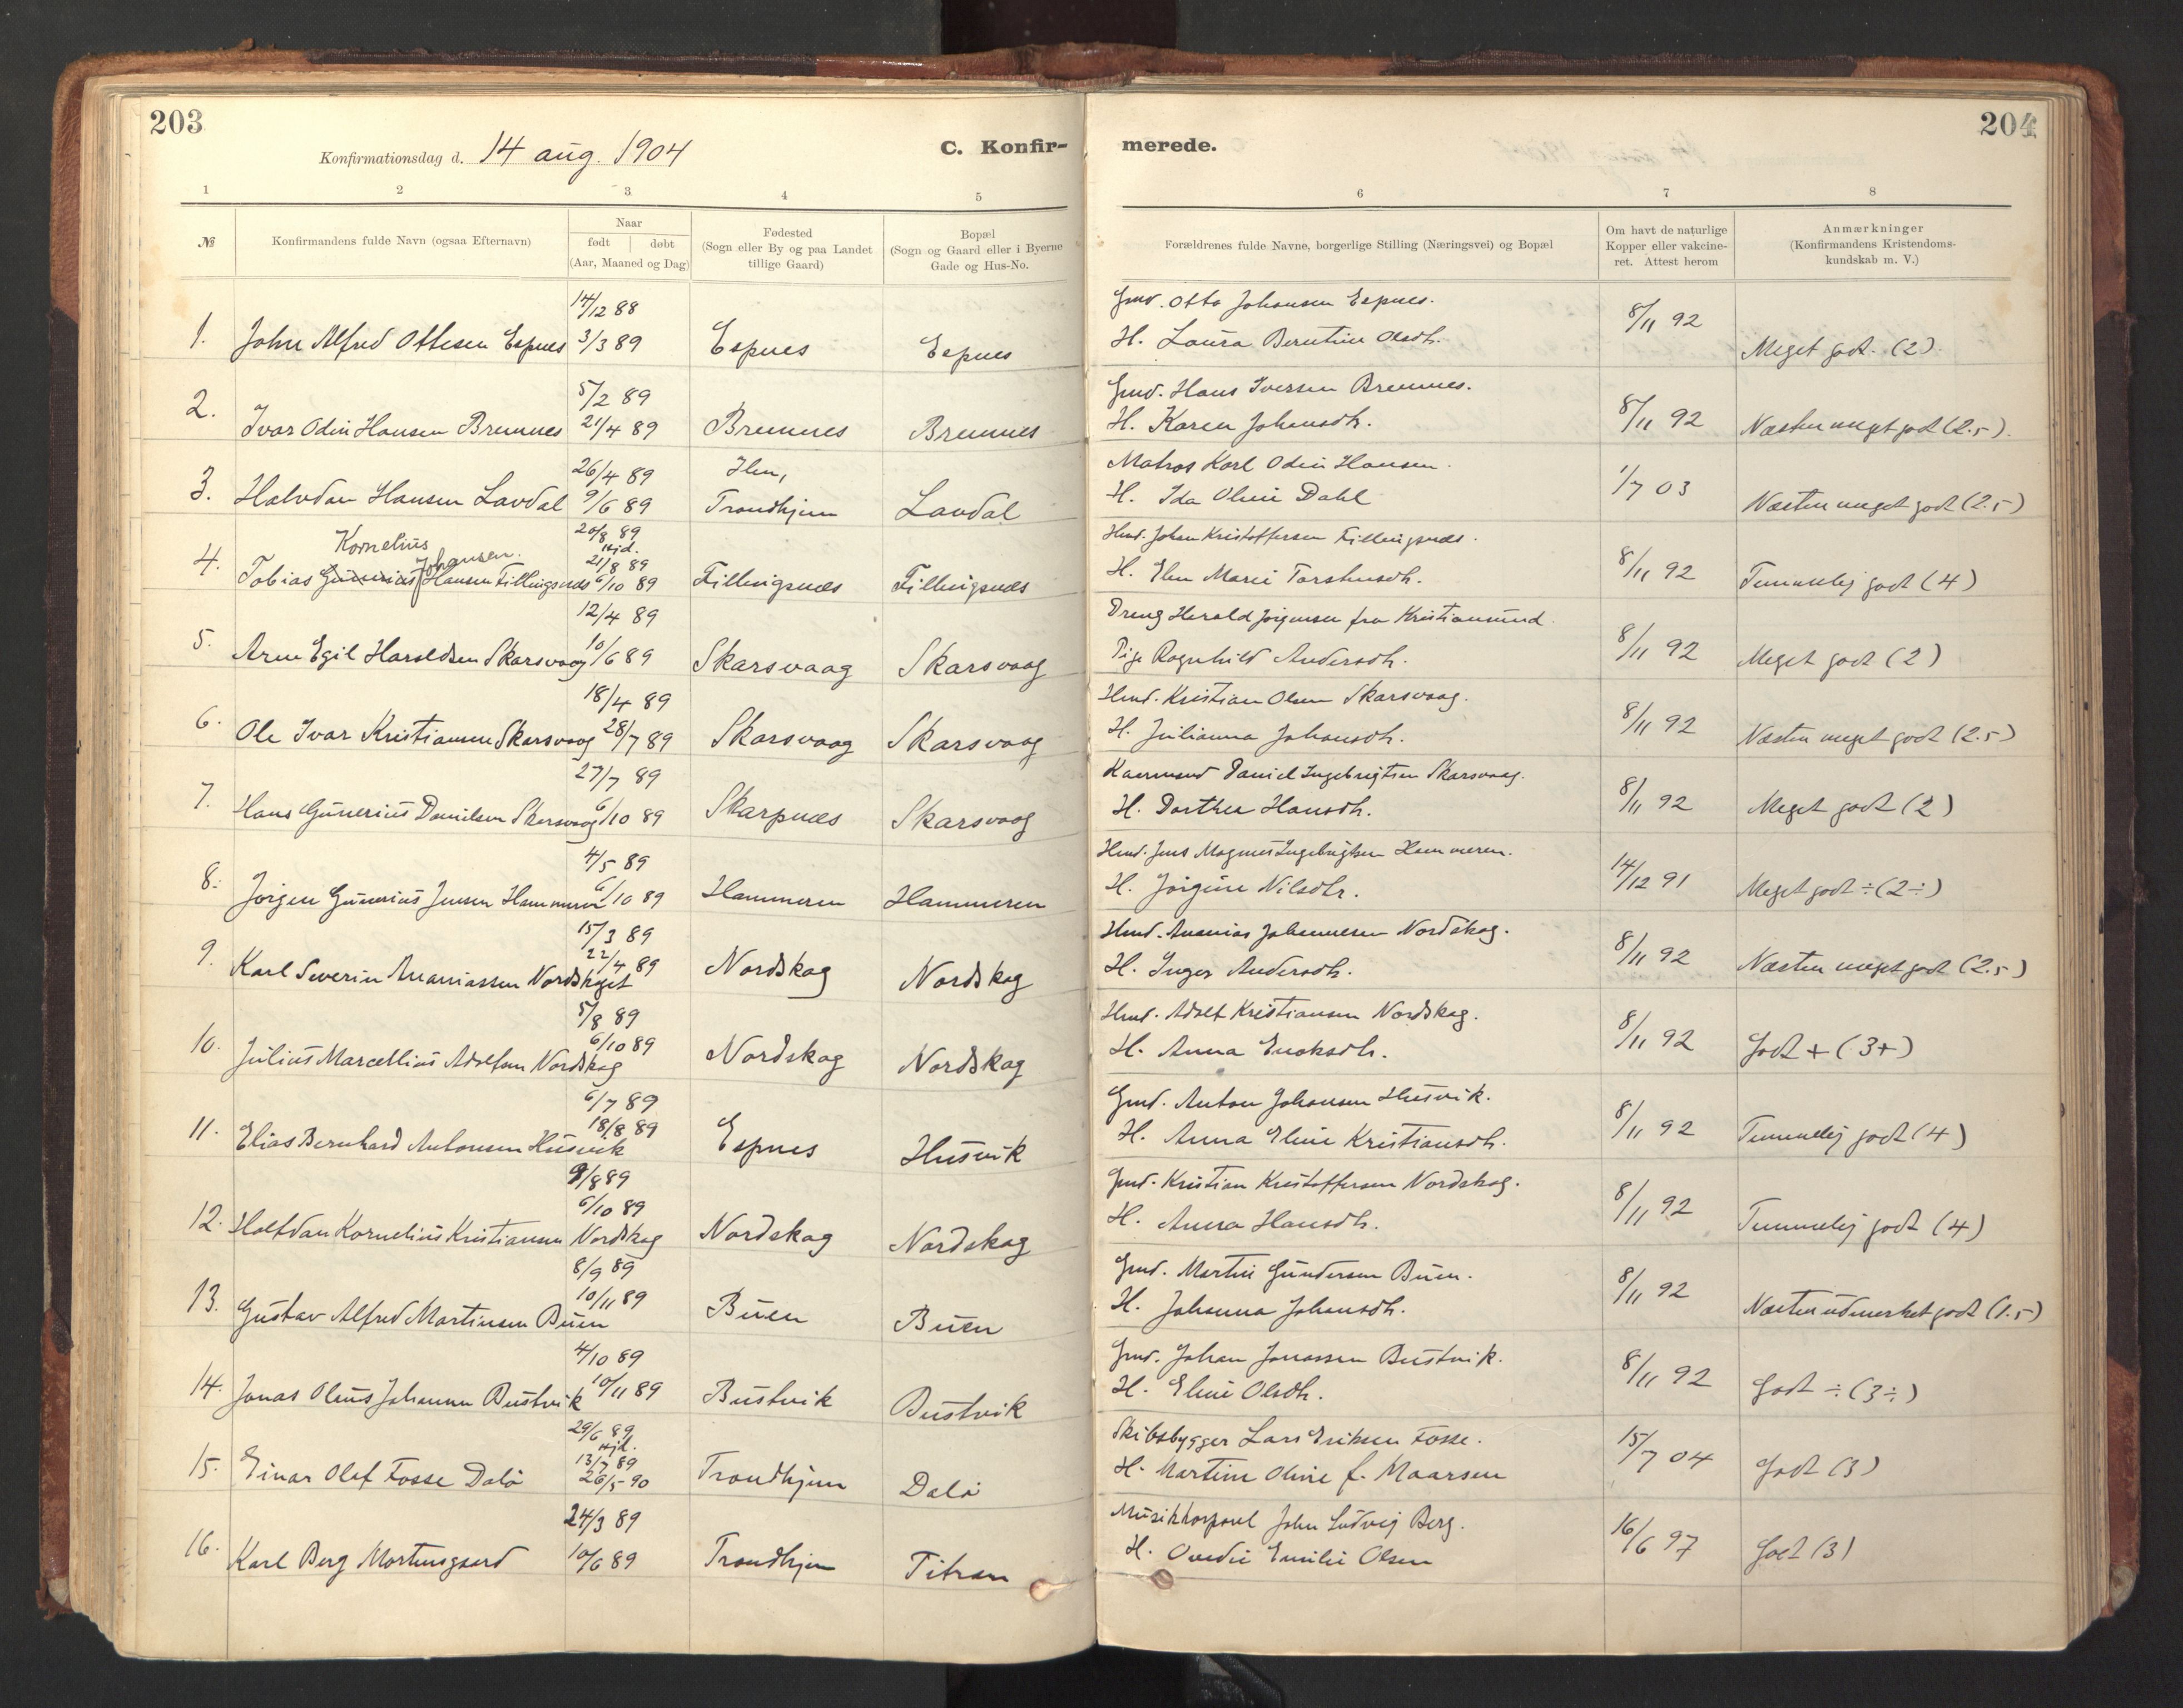 203
Konfirmationsdag d. 14 aug. 1904
C. Konfir-
merede.
204
1 2 3 4 5 6 7 8
№
Konfirmandens fulde Navn (ogsaa Efternavn)
Naar
født | døbt
(Aar, Maaned og Dag)
Fødested
(Sogn eller By og paa Landet
tillige Gaard)
Bopæl
(Sogn og Gaard eller i Byerne
Gade og Hus-No.
Forældrenes fulde Navne, borgerlige Stilling (Næringsvei) og Bopæl
Om havt de naturlige
Kopper eller vakcine-
ret. Attest herom
Anmærkninger
(Konfirmandens Kristendoms-
kundskab m. V.)
14/12 88 Gmd. Otto Johansen Espnes. 8/11 92
1. John Alfred Ottesen Espnes 3/3 89 Espnes Espnes H. Laura Berntine Olsdt. Meget godt. (2).
5/2 89 Gmd. Hans Iversen Bremnes.
2. Ivar Odin Hansen Bremnes 21/4 89 Bremnes Bremnes H. Karen Johansdt. 8/11 92 Næsten meget godt (2.5).
26/4 89 Ilen, Matros Karl Odin Hansen.
3. Halvdan Hansen Lavdal 9/6 89 Trondhjem Lavdal H. Ida Oline Dahl 1/7 03 Næsten meget godt (2.5)
Kornelius Johansen. 20/8 89 Hjd. 21/8 89 Hmd. Johan Kristoffersen Fillingsnæs.
4. Tobias Gunerius Hansen Fillingsnæs 6/10 89 Fillingsnæs Fillingsnæs H. Elen Marie Torstensdt. 8/11 92 Temmelig godt (4)
12/4 89 Dreng Harald Jørgensen fra Kristiansund.
5. Arne Egil Haraldsen Skarsvaag 10/6 89 Skarsvaag Skarsvaag Pige Ragnhild Andersdt. 8/11 92 Meget godt (2)
18/4 89 Hmd. Kristian Olsen Skarsvaag.
6. Ole Ivar Kristiansen Skarsvaag 28/7 89 Skarsvaag Skarsvaag H. Julianna Johansdt. 8/11 92 Næsten meget godt (2.5)
27/7 89 Kaarmand Daniel Ingebrigtsen Skarsvaag.
7. Hans Gunerius Danielsen Skarsvaag 6/10 89 Skarpnæs Skarsvaag H. Dorthea Hansdt. 8/11 92 Meget godt (2)
4/5 89 Hmd. Jens Magnus Ingebrigtsen Hammeren.
8. Jørgen Gunerius Jensen Hammeren 6/10 89 Hammeren Hammeren H. Jørgine Nilsdtr. 14/12 91 Meget godt ÷ (2÷)
15/3 89 Hmd. Ananias Johannesen Nordskag.
9. Karl Severin Ananiassen Nordskaget 22/4 89 Nordskag Nordskag H. Inger Andersdt. 8/11 92 Næsten meget godt (2.5)
5/8 89 Hmd. Adolf Kristiansen Nordskag.
10. Julius Marcellius Adolfsen Nordskag 6/10 89 Nordskag Nordskag H. Anna Enoksdt. 8/11 92 Godt + (3+)
6/7 89 Gmd. Anton Johansen Husvik.
11. Elias Bernhard Antonsen Husvik 18/8 89 Espnes Husvik H. Anna Eline Kristiansdt. 8/11 92 Temmelig godt (4)
9/8 89 Gmd. Kristian Kristoffersen Nordskag.
12. Halfdan Kornelius Kristiansen Nordskag 6/10 89 Nordskag Nordskag H. Anna Hansdt. 8/11 92 Temmelig godt (4)
8/9 89 Gmd. Martin Gundersen Buen.
13. Gustav Alfred Martinsen Buen 10/11 89 Buen Buen H. Johanna Johansdt. 8/11 92 Næsten udmerket godt (1.5)
4/10 89 Gmd. Johan Jonassen Bustvik.
14. Jonas Olaus Johansen Bustvik 10/11 89 Bustvik Bustvik H. Eline Olsdt. 8/11 92 Godt ÷ (3÷)
29/6 89 Hjd. 13/7 89 Skibsbygger Lars Eriksen Fosse.
15. Einar Olaf Fosse Dalø 26/5 90 Trondhjem Dalø H. Martine Oline f. Maarsen 15/7 04 Godt (3)
24/3 89 Musikkorporal John Ludvig Berg.
16. Karl Berg Mortensgaard 10/6 89 Trondhjem Titran H. Ovedie Emilie Olsen 16/6 97 Godt (3)